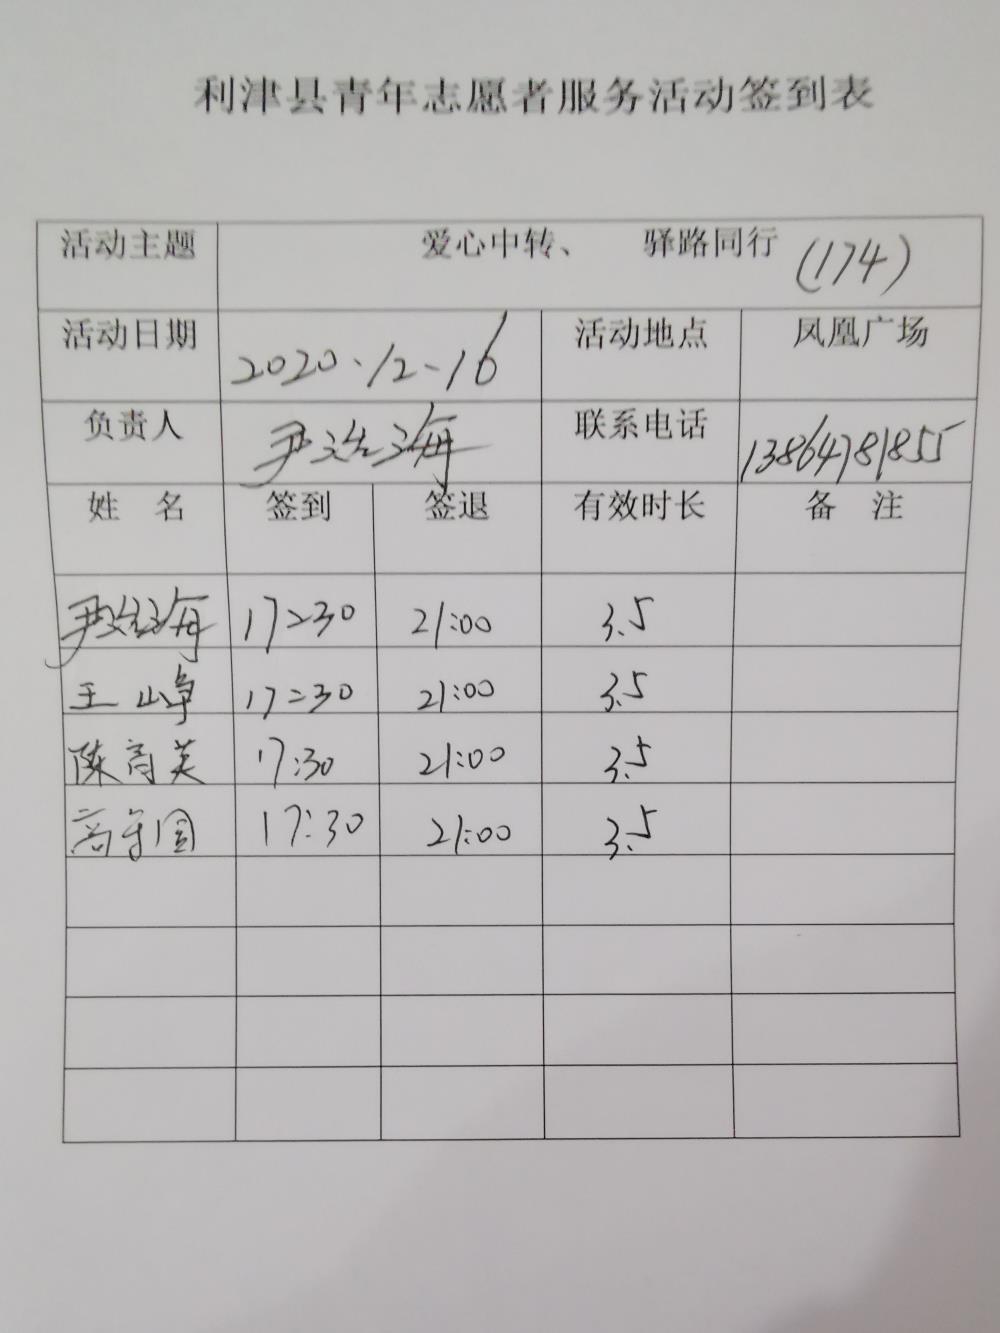 利津县青年志愿者服务活动签到表
活动主题 爱心中转、 驿路同行 (174)
活动日期 2020.12-16 活动地点 凤凰广场
负责人 尹浩海 联系电话 13864781855
姓 名 签到 签退 有效时长 备 注
尹浩海 17:30 21:00 3.5
王 山卓 17:30 21:00 3.5
陈育英 17:30 21:00 3.5
高守国 17:30 21:00 3.5